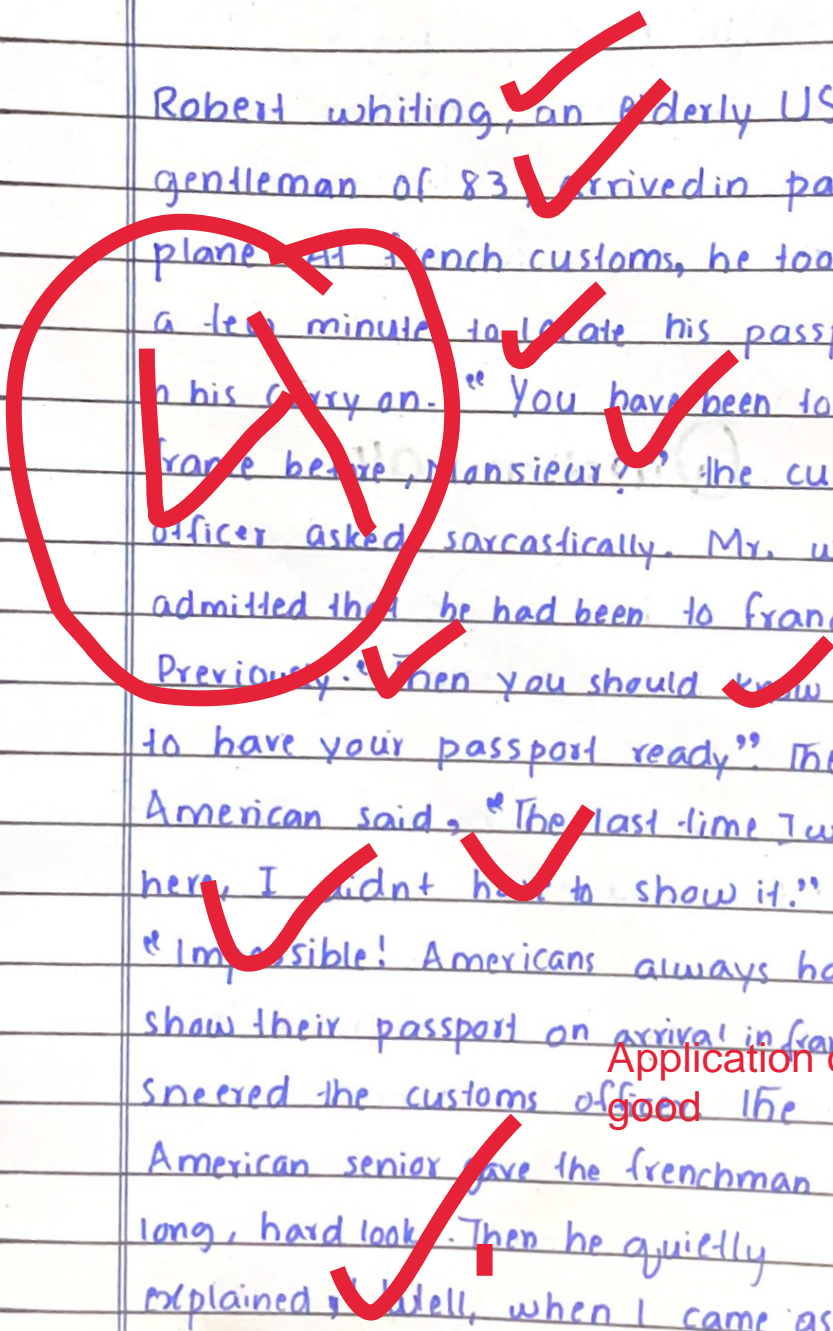 Robert whiting, an elderly US
gentleman of 83 arrived in pa
plane At french customs, he too
a few minute to locate his passp
n his carry on. "You have been to
france before, Monsieur?" the cu
officer asked sarcastically. Mr. w
admitted that he had been to fran
Previously. "Then you should know
to have your passport ready" The
American said, "The last time I w
here, I didnt have to show it."
"Impossible! Americans always ha
show their passport on arrival in fran
Application o
sneered the customs officer The
good
American senior gave the frenchman
long, hard look. Then he quietly
explained, "Well, when I came as